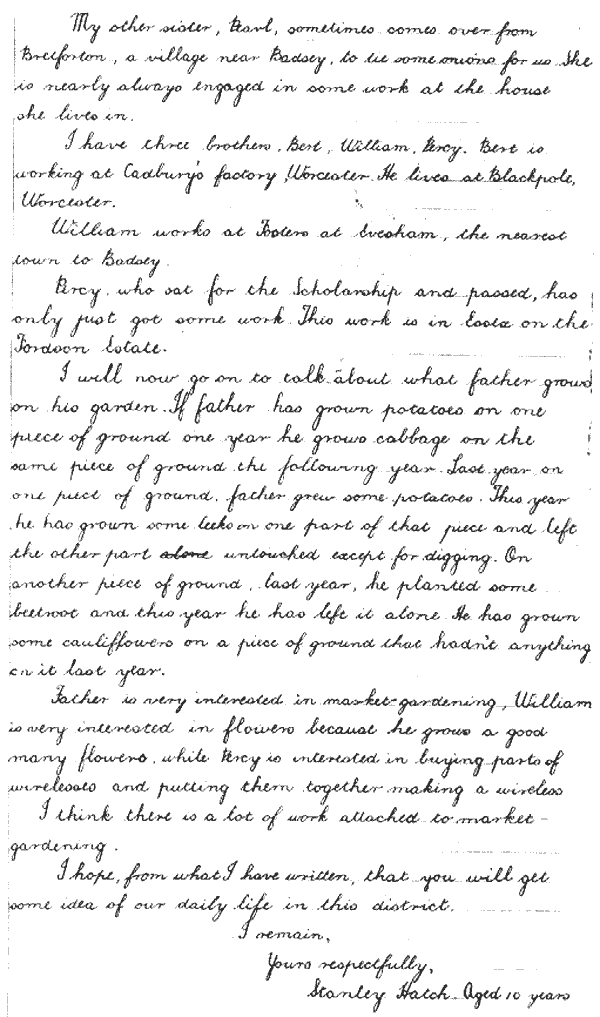 My other sister, Pearl, sometimes comes over from
Bretforton, a village near Badsey, to tie some onions for us. She
is nearly always engaged in some work at the house
she lives in.
I have three brothers, Bert, William, Percy. Bert is
working at Cadbury's factory, Worcester. He lives at Blackpole,
Worcester.
William works at Fosters at Evesham, the nearest
town to Badsey.
Percy, who sat for the Scholarship and passed, has
only just got some work. This work is in Essex on the
Fordson Estate.
I will now go on to talk about what father grows
on his garden. If father has grown potatoes on one
piece of ground one year he grows cabbage on the
same piece of ground the following year. Last year on
one piece of ground, father grew some potatoes. This year
he has grown some leeks on one part of that piece and left
the other part alone untouched except for digging. On
another piece of ground, last year, he planted some
beetroot and this year he has left it alone. He has grown
some cauliflowers on a piece of ground that hadn't anything
on it last year.
Father is very interested in market-gardening, William
is very interested in flowers because he grows a good
many flowers, while Percy is interested in buying parts of
wirelesses and putting them together making a wireless
I think there is a lot of work attached to market-
gardening.
I hope, from what I have written, that you will get
some idea of our daily life in this district.
I remain,
Yours respectfully,
Stanley Hatch. Aged 10 years